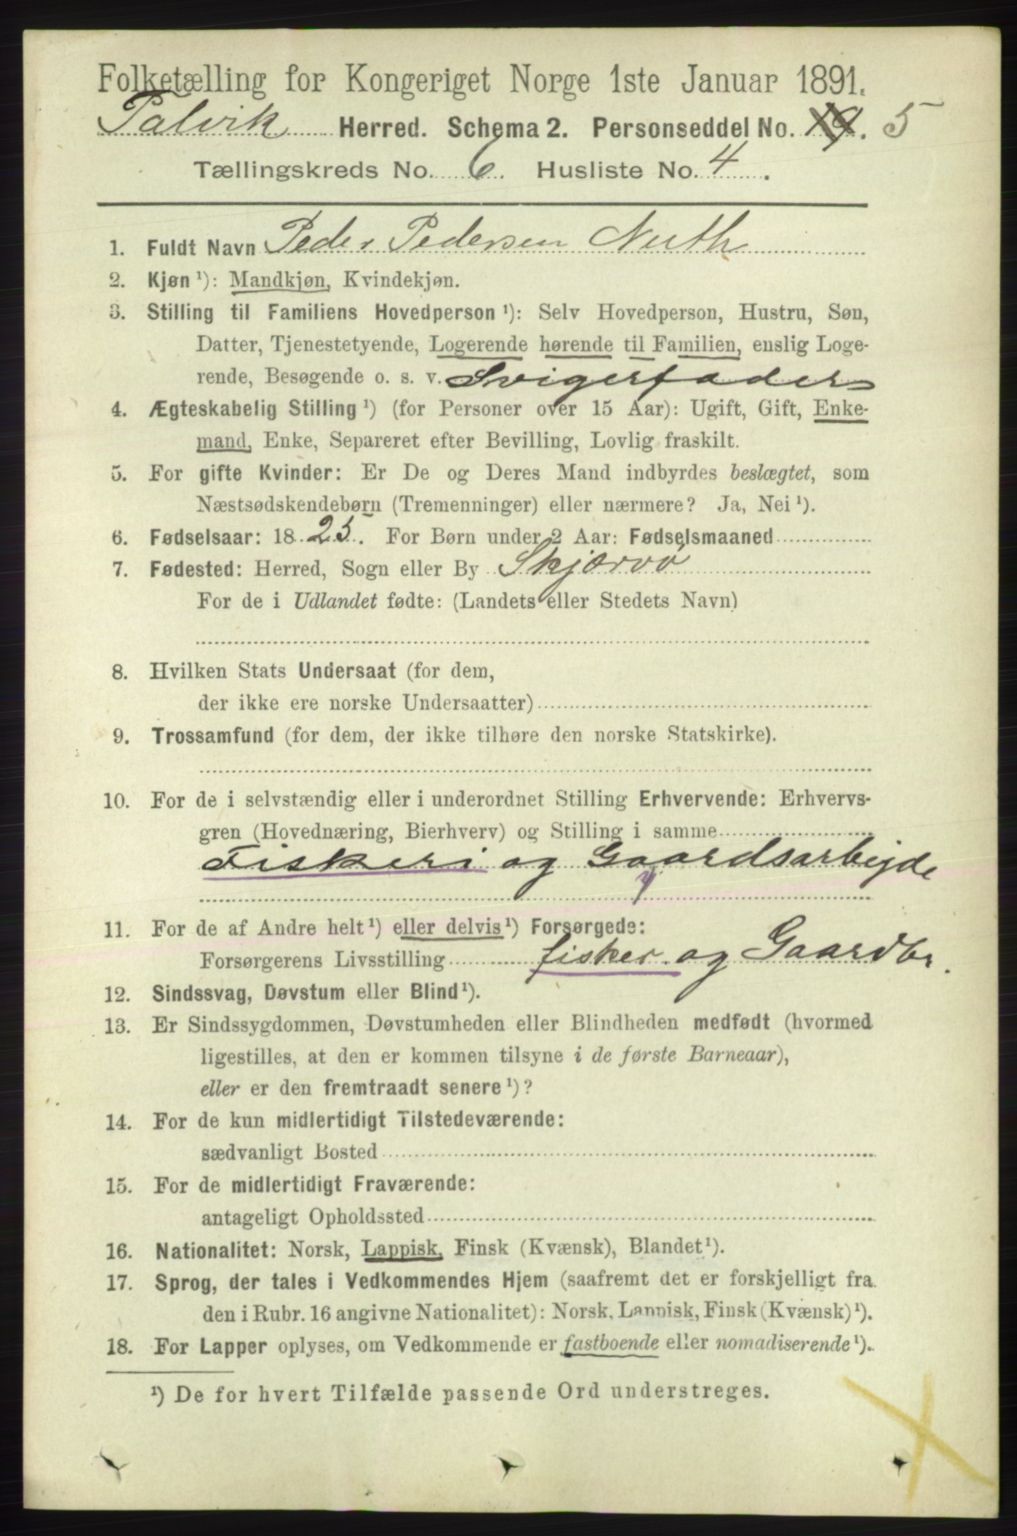 Folketælling for Kongeriget Norge 1ste Januar 1891.
Talvik Herred. Schema 2. Personseddel No. 19. 5
Tællingskreds No. 6 Husliste No. 4.
1. Fuldt Navn Peder Pedersen Nuth
2. Kjøn ¹): Mandkjøn, Kvindekjøn.
3. Stilling til Familiens Hovedperson ¹): Selv Hovedperson, Hustru, Søn,
Datter, Tjenestetyende, Logerende hørende til Familien, enslig Loge-
rende, Besøgende o. s. v. Svigerfader
4. Ægteskabelig Stilling ¹) (for Personer over 15 Aar): Ugift, Gift, Enke-
mand, Enke, Separeret efter Bevilling, Lovlig fraskilt.
5. For gifte Kvinder: Er De og Deres Mand indbyrdes beslægtet, som
Næstsødskendebørn (Tremenninger) eller nærmere? Ja, Nei ¹).
6. Fødselsaar: 18 25. For Børn under 2 Aar: Fødselsmaaned
7. Fødested: Herred, Sogn eller By Skjærvø
For de i Udlandet fødte: (Landets eller Stedets Navn)
8. Hvilken Stats Undersaat (for dem,
der ikke ere norske Undersaatter)
9. Trossamfund (for dem, der ikke tilhøre den norske Statskirke).
10. For de i selvstændig eller i underordnet Stilling Erhvervende: Erhvervs-
gren (Hovednæring, Bierhverv) og Stilling i samme
Fiskeri og Gaardsarbejde
11. For de af Andre helt ¹) eller delvis ¹) Forsørgede:
Forsørgerens Livsstilling fisker og Gaardbr.
12. Sindssvag, Døvstum eller Blind ¹).
13. Er Sindssygdommen, Døvstumheden eller Blindheden medfødt (hvormed
ligestilles, at den er kommen tilsyne i de første Barneaar),
eller er den fremtraadt senere ¹)?
14. For de kun midlertidigt Tilstedeværende:
sædvanligt Bosted
15. For de midlertidigt Fraværende:
antageligt Opholdssted
16. Nationalitet: Norsk, Lappisk, Finsk (Kvænsk), Blandet ¹).
17. Sprog, der tales i Vedkommendes Hjem (saafremt det er forskjelligt fra
den i Rubr. 16 angivne Nationalitet): Norsk, Lappisk, Finsk (Kvænsk) ¹).
18. For Lapper oplyses, om Vedkommende er fastboende eller nomadiserende ¹).
¹) De for hvert Tilfælde passende Ord understreges.